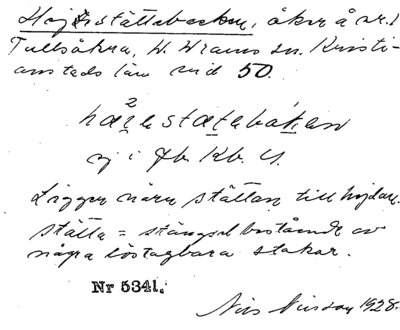 Hojestättabacken, åker å nr. 1
Tullsåkra, W. Wrams sn. Kristi-
anstads län vid 50.
ej i Jb. Kb. U.
Ligger nära stättan till hojdare.
Stätta = stängsel bestående av
några löstagbara stakar.
Nr 5341.
Nils Nilsson 1928.